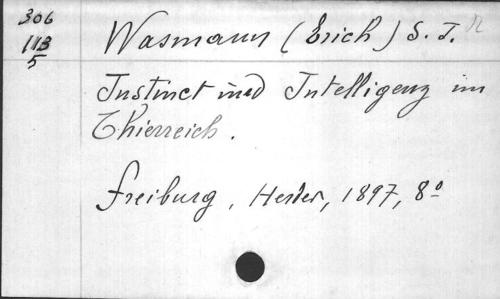 306
113
5
Wasmann (Erich) S. J.
Instinct und Intelligenz im
Thierreich.
Freiburg, Herder, 1897, 8°